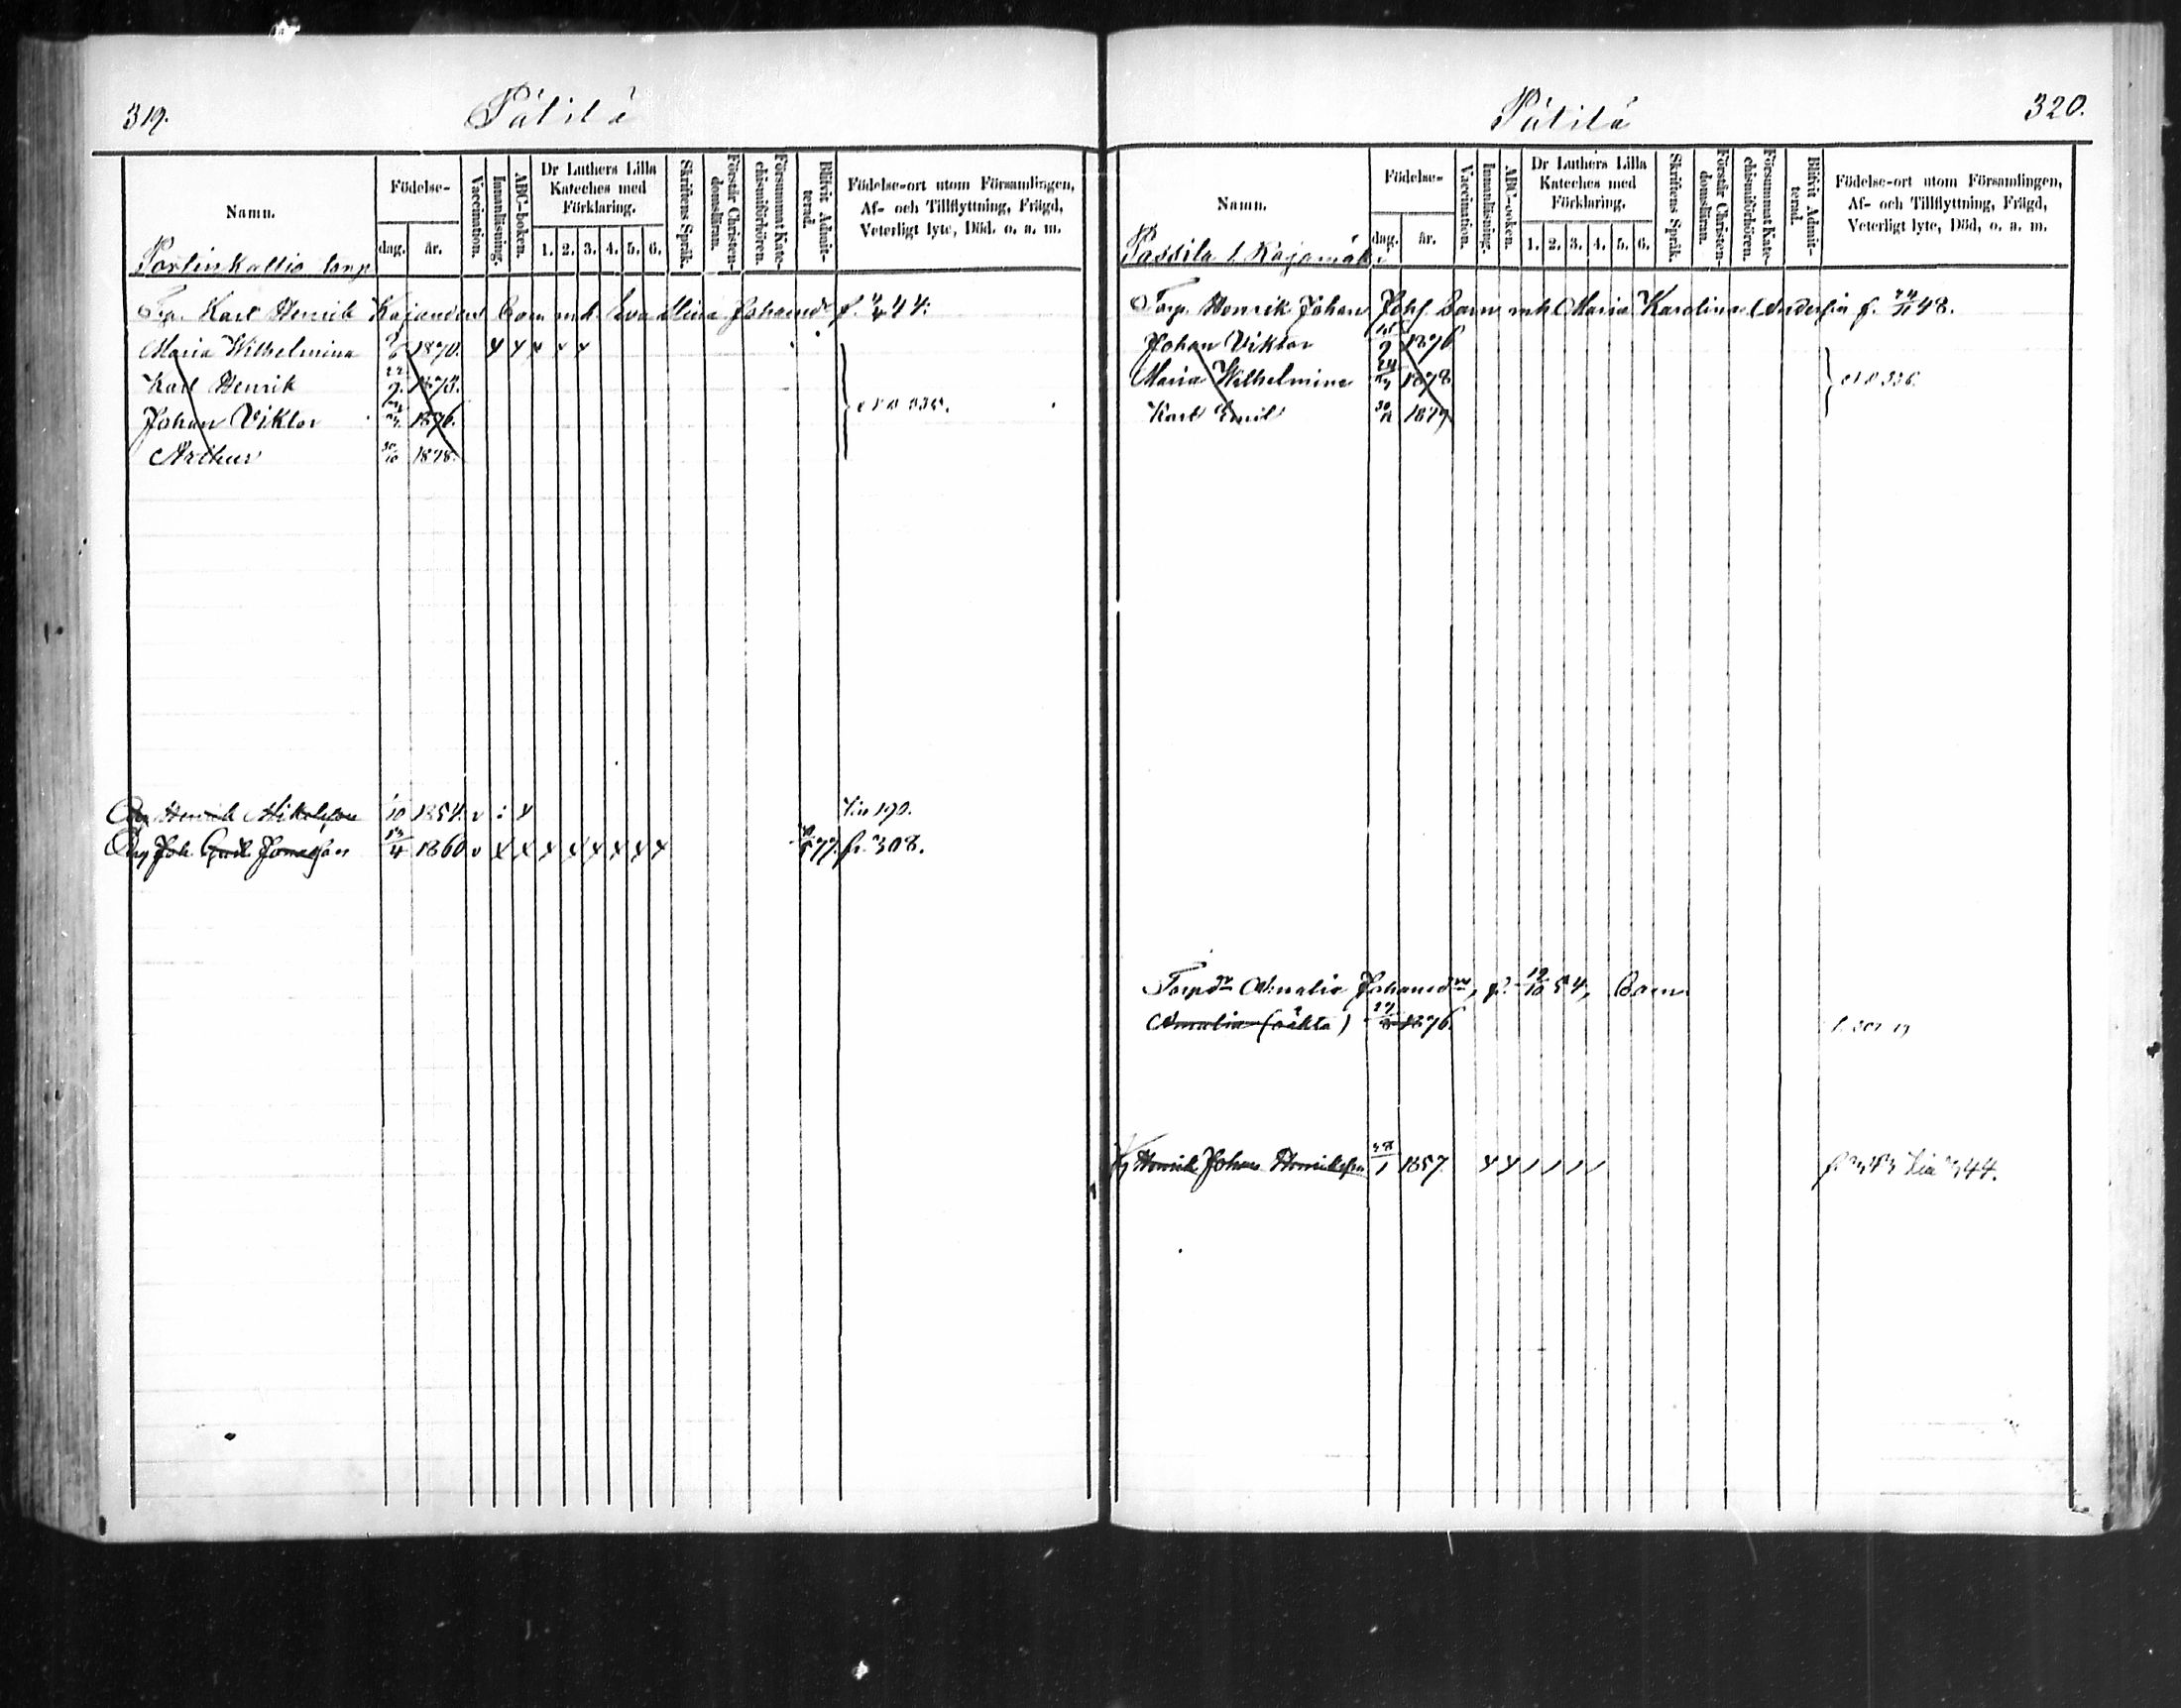 319.
Pätilä
Namn.
Födelse-
dag.
år.
Vaccination.
Innanläsning.
ABC-boken.
Dr Luthers Lilla
Kateches med
Förklaring.
1. 2. 3. 4. 5. 6.
Skriftens Språk.
Förstår Christen-
domsläran.
Försummat Kate-
chismiförhören.
Blifvit Admit-
terad.
Födelse-ort utom Församlingen,
Af- och Tillflyttning, Frägd,
Veterligt lyte, Död. o. a. m.
Portinkallio torp
Karl Henrik Kajanders barn mh. Eva Stina Johansdr f. 44.
Maria Wilhelmina 1870. x x x x x
Karl Henrik 1873.
Johan Viktor 1876.
Arthur 30/10 1878.
Henrik Mikelsson 10 1854. v : x
Lia 190.
Joh Gust 4 1860 v x x x x x x x x 77. fr. 308.
320.
Pätilä
Namn.
Födelse-
dag.
år.
Vaccination.
Innanläsning.
ABC-boken.
Dr Luthers Lilla
Kateches med
Förklaring.
1. 2. 3. 4. 5. 6.
Skriftens Språk.
Förstår Christen-
domsläran.
Försummat Kate-
chismiförhören.
Blifvit Admit-
terad.
Födelse-ort utom Församlingen,
Af- och Tillflyttning, Frägd,
Veterligt lyte, Död, o. a. m.
Passila l. Rajamäki
Torp. Henrik Johan Johss barn mh Maria Karolina Andersin f. 24/11 48.
Johan Viktor 1876
Maria Wilhelmina 1878
Karl Emil 1879
Torpdr Amalia Johansdr, f. 12/10 54, Barn
Amalia (oäkta) 1876.
Henrik Johan Henriksson 28/1 1857. x x / / / /
fr 343 Lia 344.